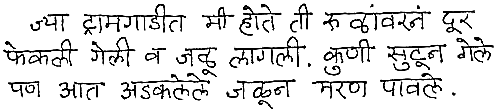 ज्या ट्रामगाडीत मी होते ती रुळांवरनं दूर
फेकली गेली व जळू लागली. कुणी सुटून गेले
पण आत अडकलेले जळून मरण पावले.